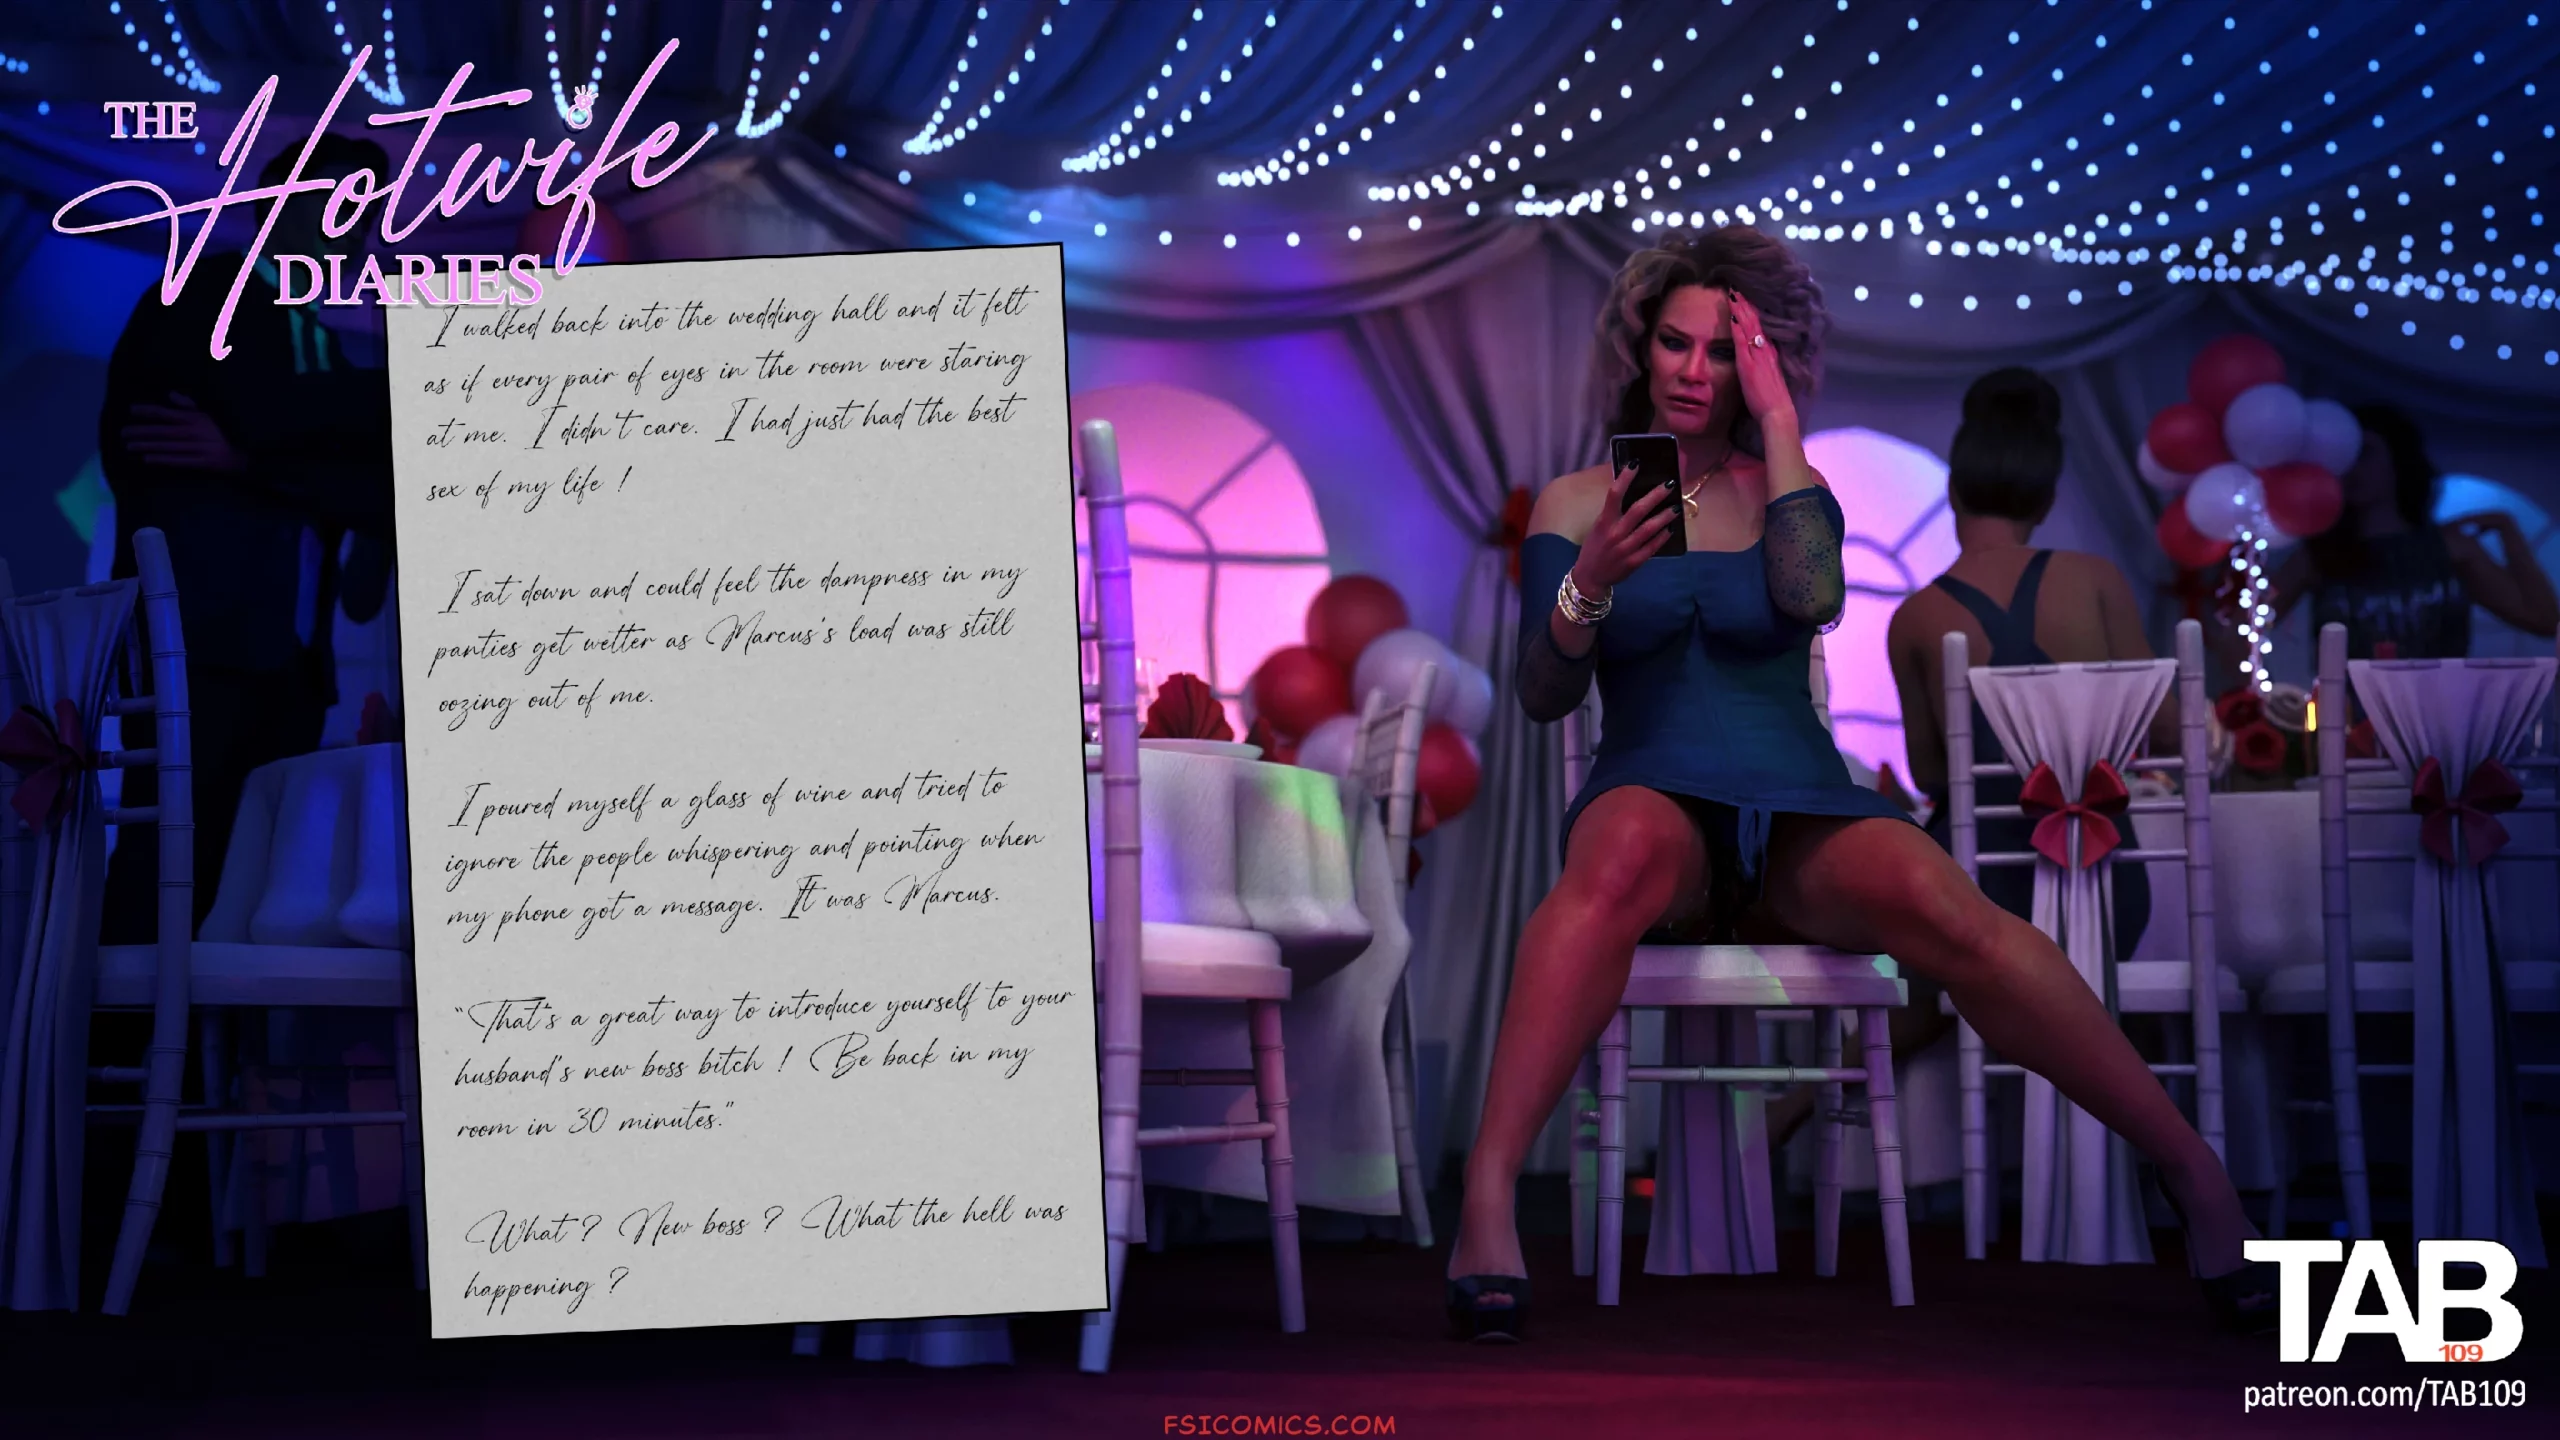 THE
Hotwife
DIARIES
I walked back into the wedding hall and it felt
as if every pair of eyes in the room were staring
at me. I didn't care. I had just had the best
sex of my life !
I sat down and could feel the dampness in my
panties get wetter as Marcus's load was still
oozing out of me.
I poured myself a glass of wine and tried to
ignore the people whispering and pointing when
my phone got a message. It was Marcus.
"That's a great way to introduce yourself to your
husband's new boss bitch ! Be back in my
room in 30 minutes."
What ? New boss ? What the hell was
happening ?
TAB
109
patreon.com/TAB109
FSICOMICS.COM